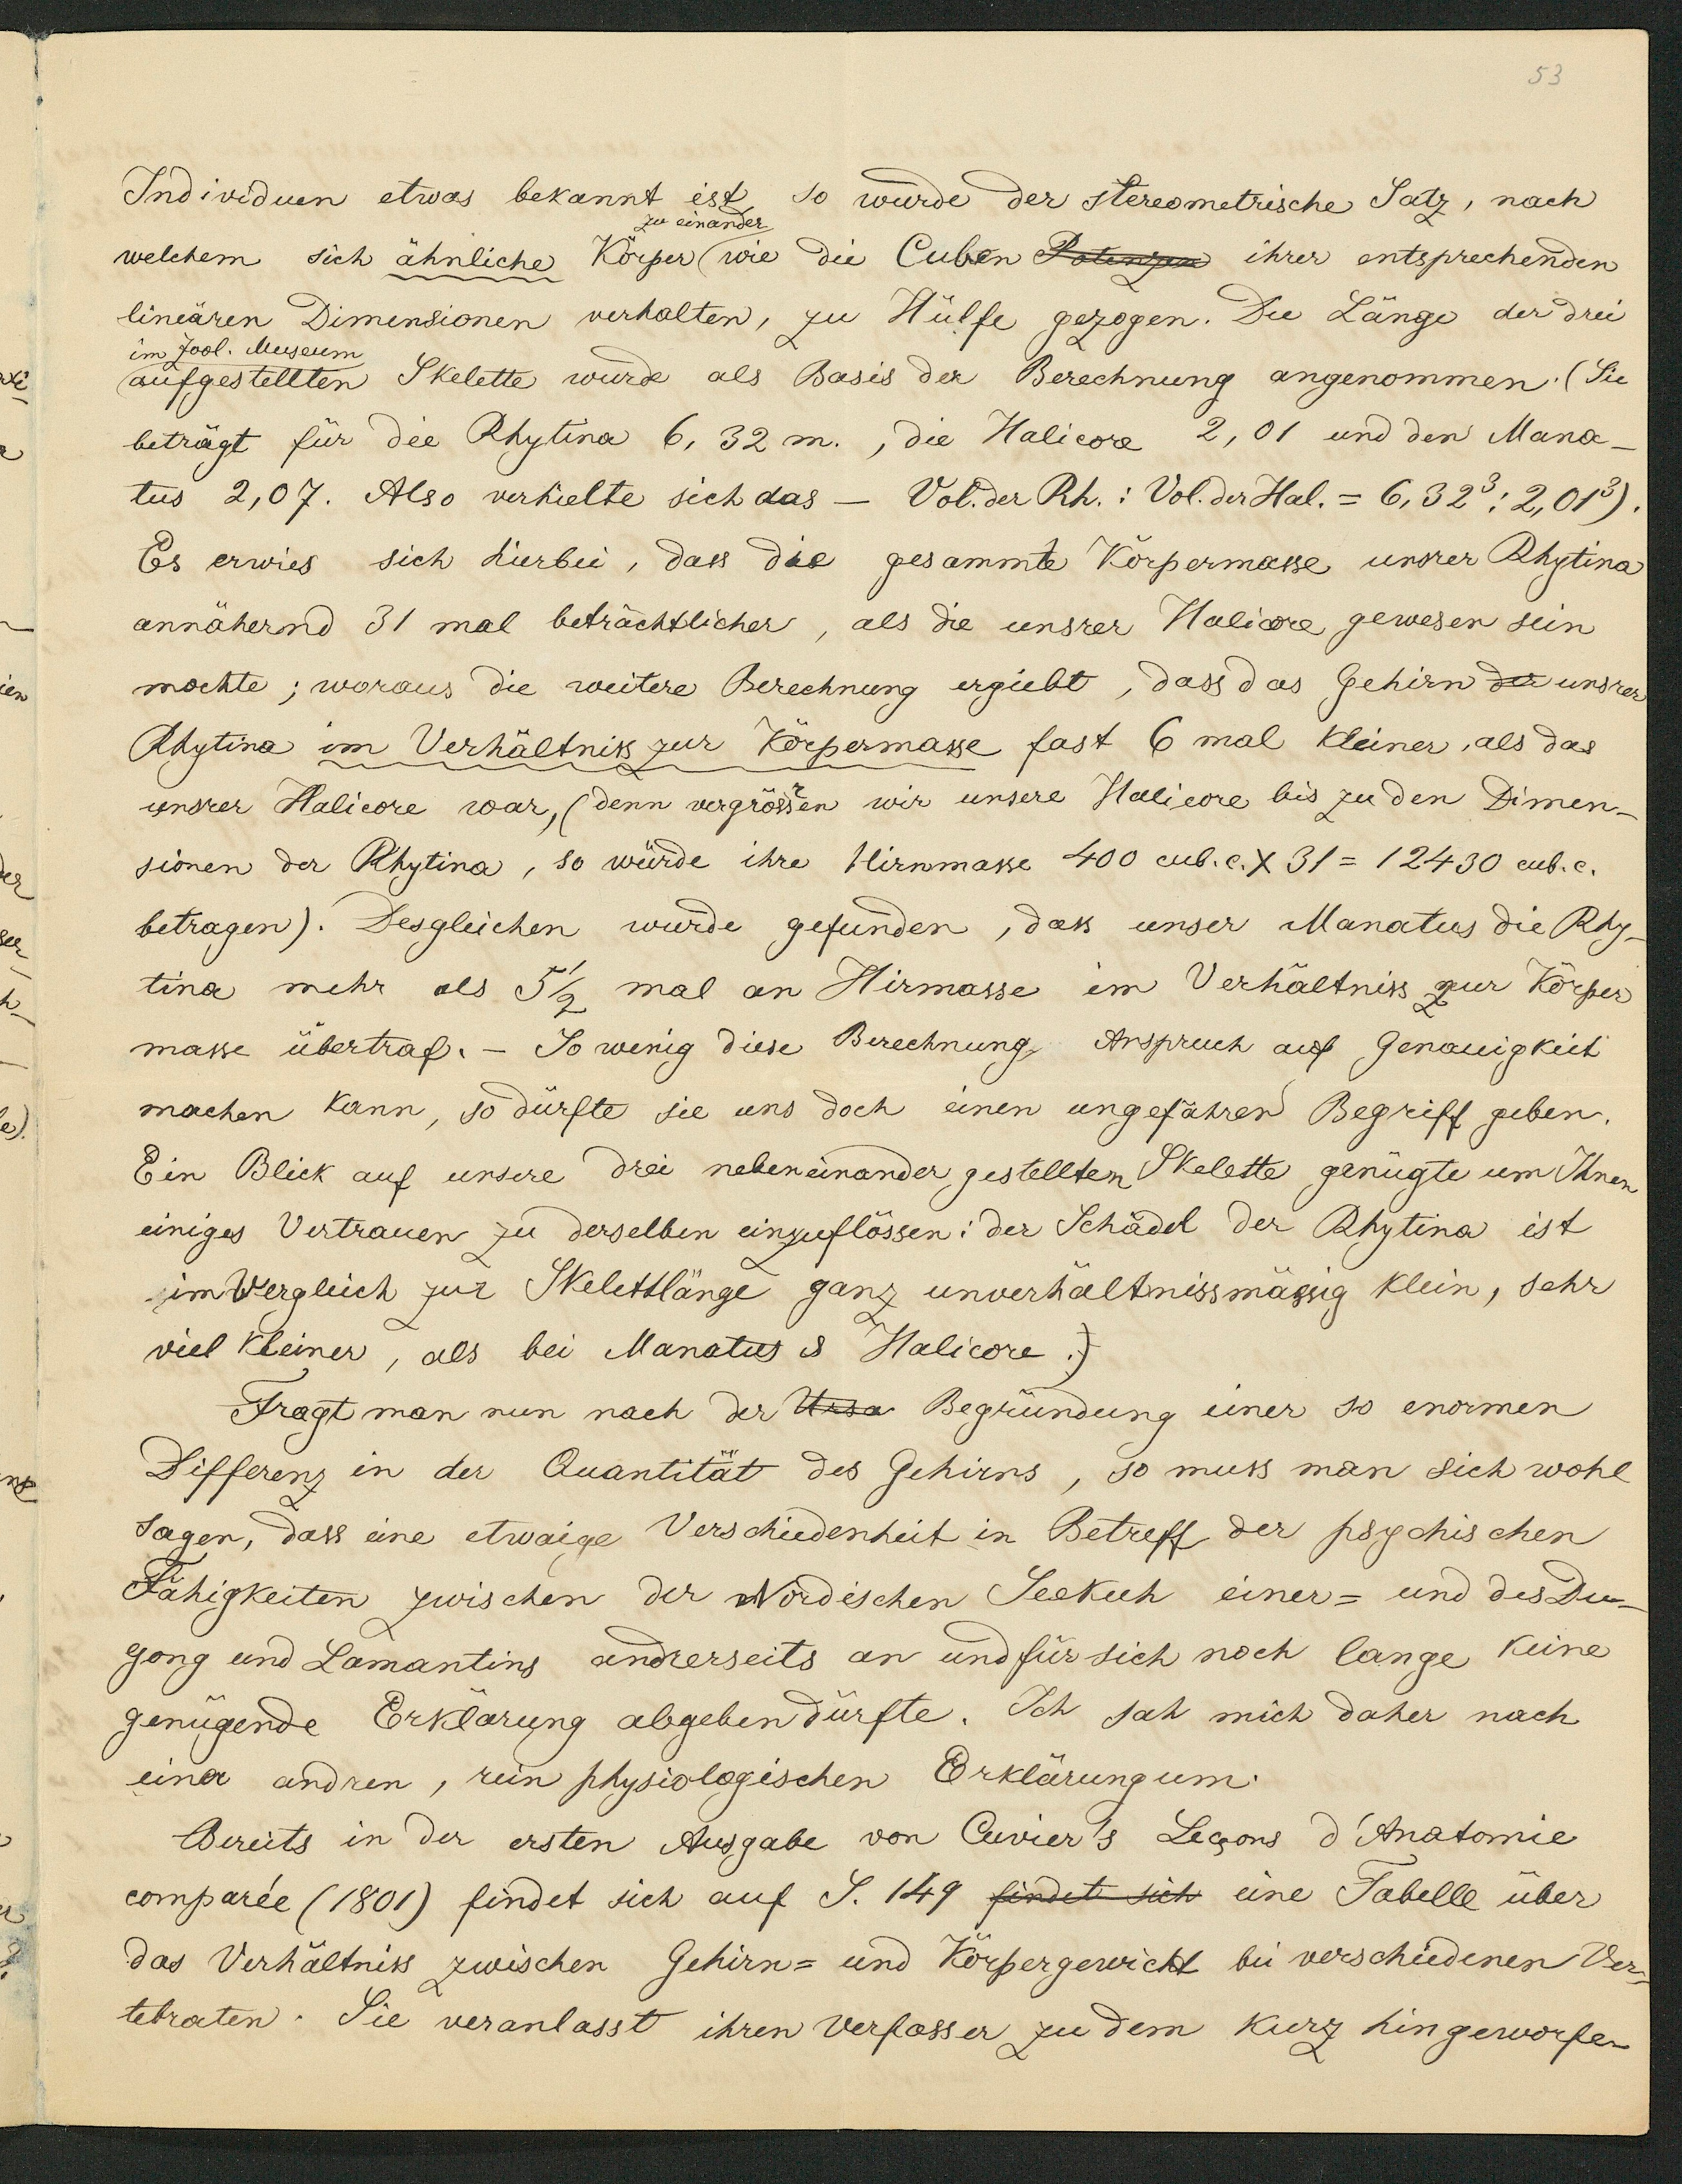 53
Individuen etwas bekannt ist, so wurde der stereometrische Satz, nach
zu einander
welchem sich ähnliche Körper wie die Cuben Potenzen ihrer entsprechenden
lineären Dimensionen verhalten, zu Hülfe gezogen. Die Länge der drei
im zool. Museum
aufgestellten Skelette wurde als Basis der Berechnung angenommen. (Sie
beträgt für die Rhytina 6,32 m., die Halicore 2,01 und den Mana-
tus 2,07. Also verhielte sich das — Vol. der Rh. : Vol. der Hal. = 6,32³ : 2,01³).
Es erwies sich hierbei, dass die gesammte Körpermasse unsrer Rhytina
annähernd 31 mal beträchtlicher, als die unsrer Halicore gewesen sein
mochte; woraus die weitere Berechnung ergiebt, dass das Gehirn der unsrer
Rhytina im Verhältniss zur Körpermasse fast 6 mal kleiner, als das
unsrer Halicore war, (denn vergrössern wir unsere Halicore bis zu den Dimen-
sionen der Rhytina, so würde ihre Hirnmasse 400 cub. c. X 31 = 12430 cub. c.
betragen). Desgleichen wurde gefunden, dass unser Manatus die Rhy-
tina mehr als 5½ mal an Hirmasse im Verhältniss zur Körper
masse übertraf. — So wenig diese Berechnung Anspruch auf Genauigkeit
machen kann, so dürfte sie uns doch einen ungefähren Begriff geben.
Ein Blick auf unsere drei nebeneinander gestellten Skelette genügte um Ihnen
einiges Vertrauen zu derselben einzuflössen: der Schädel der Rhytina ist
im Vergleich zur Skelettlänge ganz unverhältnissmässig klein, sehr
viel kleiner, als bei Manatus & Halicore.)
Fragt man nun nach der Ursa Begründung einer so enormen
Differenz in der Quantität des Gehirns, so muss man sich wohl
sagen, dass eine etwaige Verschiedenheit in Betreff der psychischen
Fähigkeiten zwischen der Nordischen Seekuh einer= und des Du-
gong und Lamantins andrerseits an und für sich noch lange keine
genügende Erklärung abgeben dürfte. Ich sah mich daher nach
einer andren, rein physiologischen Erklärung um.
Bereits in der ersten Ausgabe von Cuvier's Leçons d'Anatomie
comparée (1801) findet sich auf S. 149 findet sich eine Tabelle über
das Verhältniss zwischen Gehirn= und Körpergewicht bei verschiedenen Ver-
tebraten. Sie veranlasst ihren Verfasser zu dem kurz hingeworfen